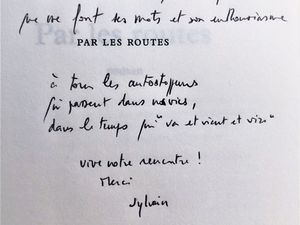 que me font ses mots et son enthousiasme
Par les routes
roman
PAR LES ROUTES
à tous les autostoppeurs
qui passent dans nos vies,
dans le temps qui "va et vient et vire"
vive notre rencontre !
Merci
Sylvain